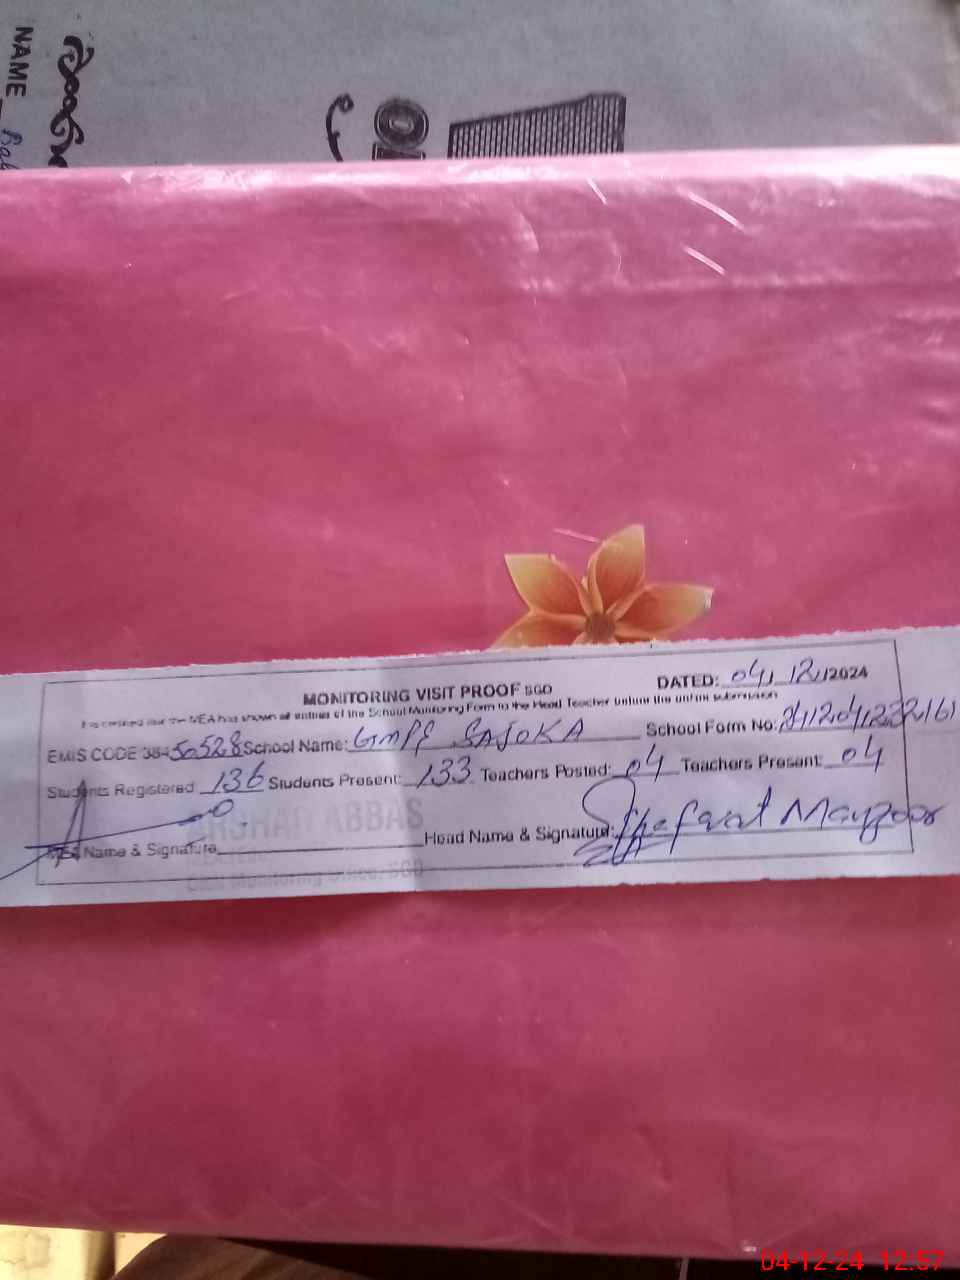 NAME
MONITORING VISIT PROOF SGD
DATED: 04/12/2024
It is certified that the MEA has shown all entries of the School Monitoring Form to the Head Teacher before the online submission
EMIS CODE 384 50528 School Name: GMPS SAJOKA School Form No:
Students Registered 136 Students Present: 133 Teachers Posted: 04 Teachers Present: 04
ARSHAD ABBAS
Name & Signature Head Name & Signature:
Monitoring Office, SGD
04-12-24 12:57